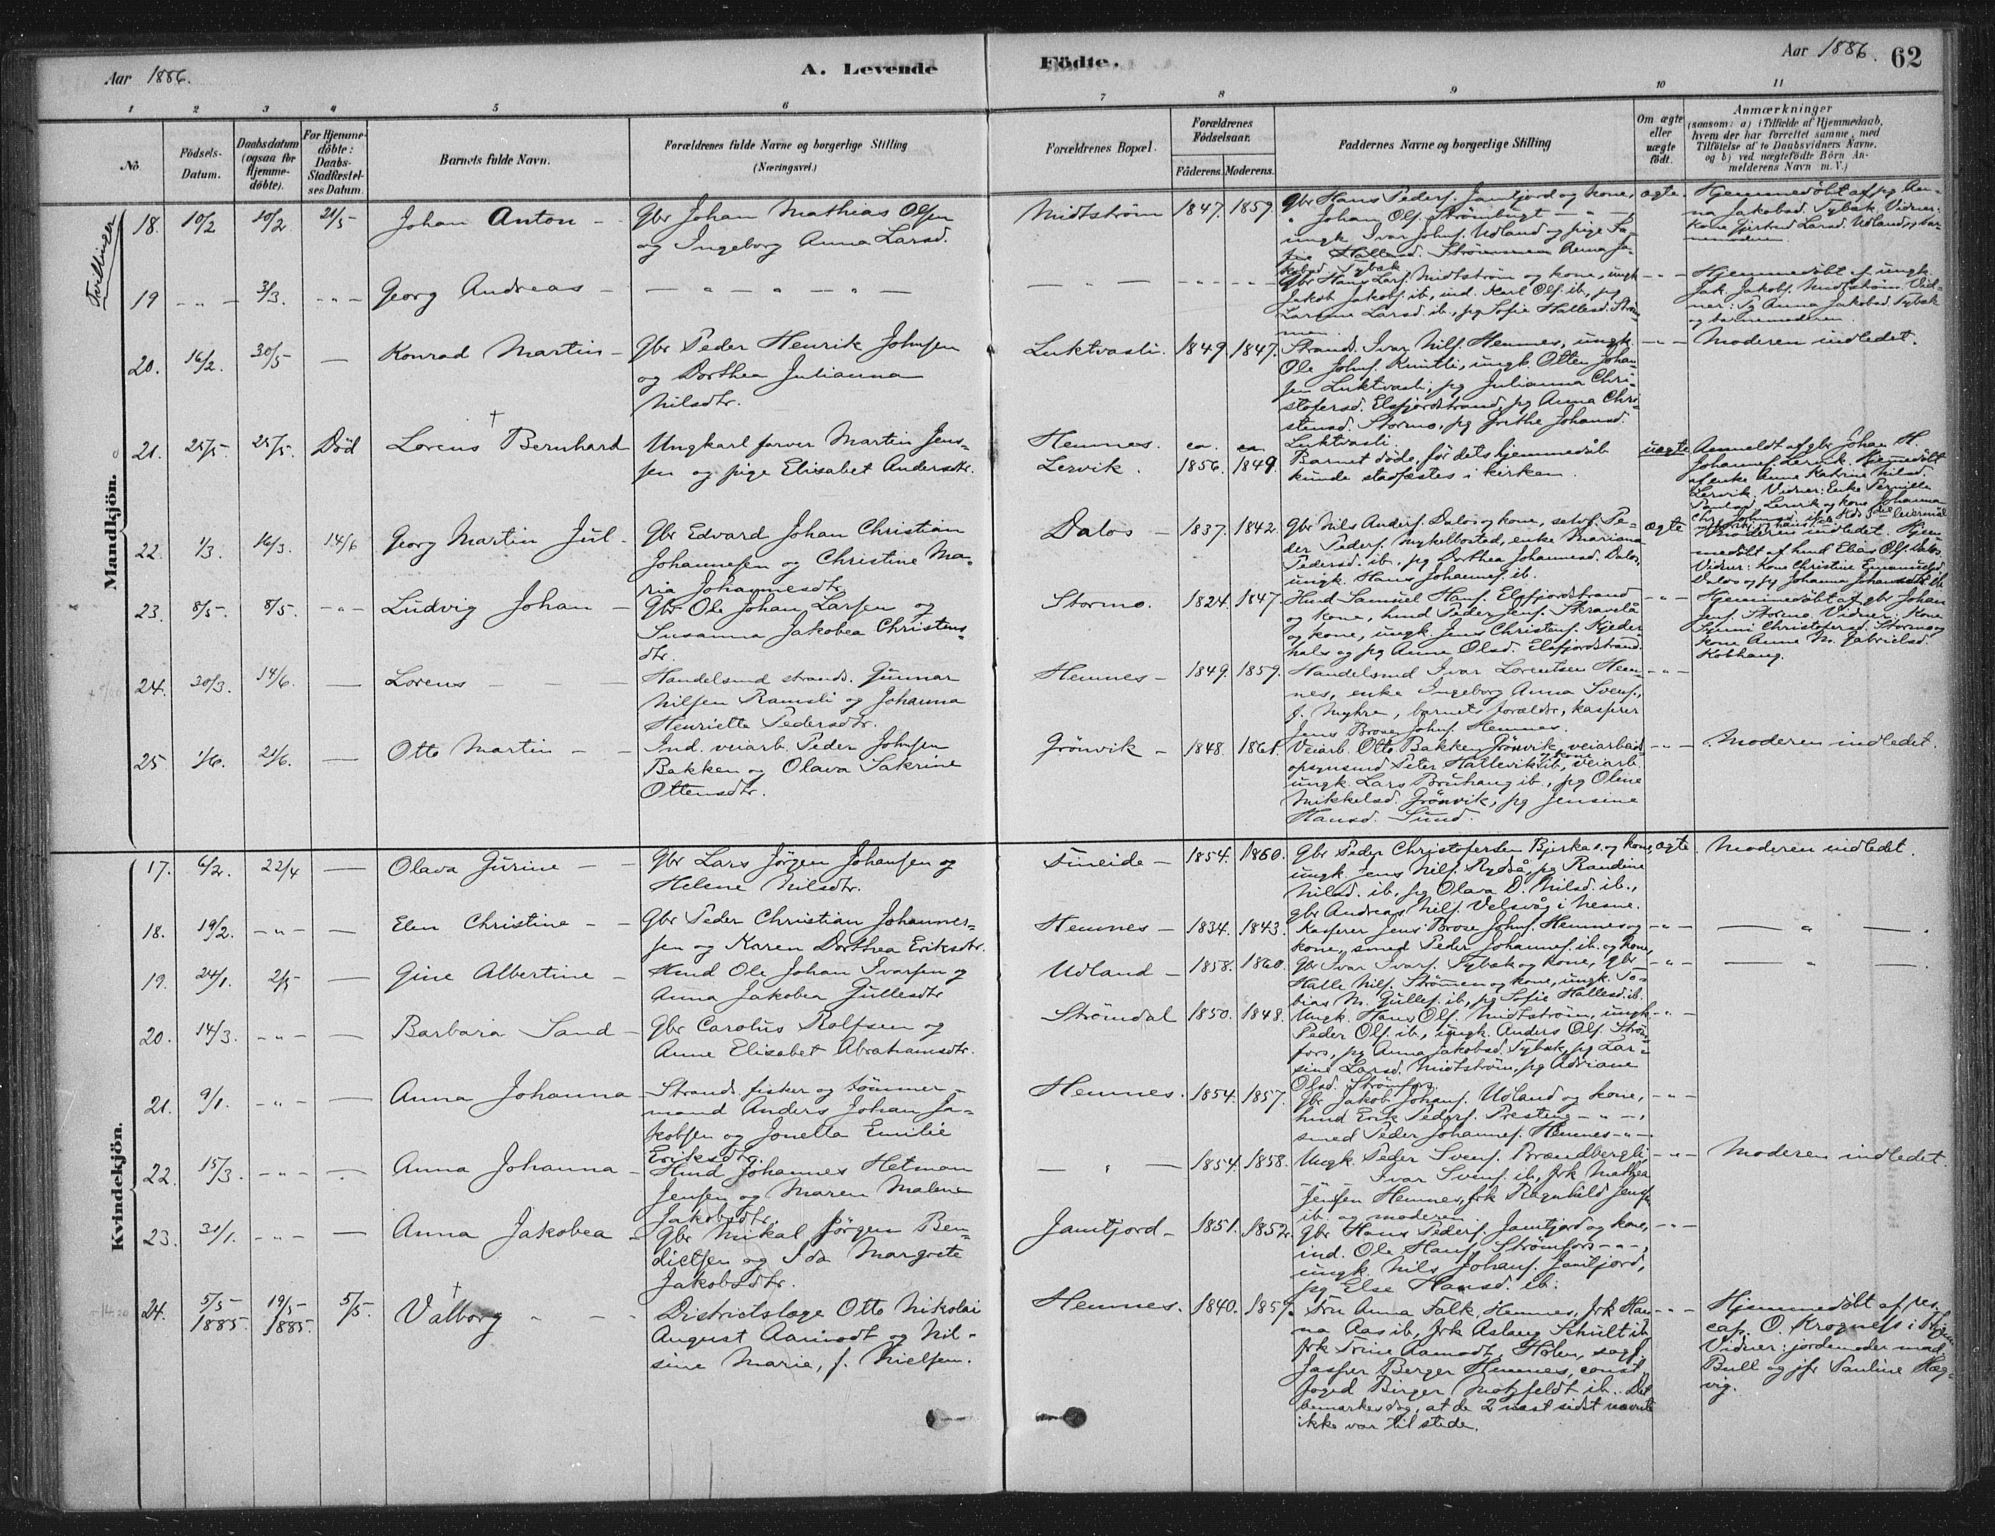 Aar 1886.
A. Levende
Födte.
Aar 1886.
62
1 2 3 4 5 6 7 8 9 10 11
No.
Födsels-Datum.
Daabsdatum (ogsaa for Hjemme-döbte).
For Hjemme-döbte: Daabs-Stadfæstel-ses Datum.
Barnets fulde Navn.
Forældrenes fulde Navne og borgerlige Stilling
(Næringsvei.)
Forældrenes Bopæl.
Forældrenes Födselsaar.
Faderens. Moderens.
Faddernes Navne og borgerlige Stilling
Om ægte eller uægte födt.
Anmærkninger
(saasom: a) i Tilfælde af Hjemmedaab,
hvem der har forrettet samme, med
Tilföielse af to Daabsvidners Navne,
og b) ved uægtefödte Börn An-
melderens Navn m. V.)
Mandkjön.
Tvillinger
18. 10/2 10/2 21/5 Johan Anton
Gbr Johan Mathias Olsen
og Ingeborg Anna Larsd.
Midtstrøm 1847. 1859.
Gbr Hans Peders. Jamtjord og kone,
" Johan Ols. Strømbugt
ungk Ivar Johns. Udland og pige
Hallesd. Strømmen Anna Ja-
kobsd. Tybæk
ægte.
Hjemmedøbt af pg An-
na Jakobsd. Tybæk. Vidner:
kone Gjertrud Larsd. Udland, og bar-
nemoderen.
19 - " - 3/3. - " - Georg Andreas
Gbr Hans Lars. Midtstrøm og kone, ungk
Jakob Jakobs. ib., ind. Karl Ols. ib., pg
Larsine Larsd. ib., pg Sofie Hallesd. Strøm-
men.
- " -
Hjemmedøbt af ungk.
Jak. Jakobs. Midtstrøm. Vid-
ner: Pg Anna Jakobsd. Tybæk
og barnemoderen.
20. 16/2. 30/5 — Konrad Martin
Gbr Peder Henrik Johnsen
og Dorthea Julianna
Nilsdtr.
Luktvasli. 1849 1847.
Strands. Ivar Nils. Hemnes, ungk.
Ole Johns. Kuntli, ungk. Otten Johan-
sen Luktvasli, pg Julianna Chri-
stofersd. Elsfjordstrand, pg Anna Chri-
stensd. Stormo, pg Grethe Johansd.
Luktvasli.
- " -
Moderen indledet.
21. 25/5- 25/5. Død Lorens † Bernhard
Ungkarl farver Martin Jens-
sen og pige Elisabet Andersdtr.
Hemnes.
Lervik.
ca. 1856. ca. 1849.
Barnet døde, før dets hjemmedøb
kunde stadfæstes i kirken.
uægte
Anmeldt af gbr Johan H.
Johannes. Lervik. Hjemmedøbt
af enke Anne Katrine Nilsd.
Lervik. Vidner: Enke Pernille
Paulsd. Lervik og kone Johanna
22. 1/3. 16/3. 14/6 Georg Martin Jul
Gbr Edvard Johan Christian
Johannesen og Christine Ma-
ria Johannesdtr.
Dalos 1837. 1842.
Gbr Nils Anders. Dalos og kone, selvf. Pe-
der Peders. Nykelbostad, enke Mariana
Pedersd. ib., pg Dorthea Johannesd. Dalos,
ungk. Hans Johannes. ib.
ægte
Moderen indledet. Hjem-
medøbt af hmd Elias Ols. Dalos.
Vidner: Kone Christine Emanuelsd.
Dalos og pg Johanna Johansdtr. ib.
23. 8/5- 8/5. - " - Ludvig Johan
Gbr Ole Johan Larsen og
Susanna Jakobea Christens-
dtr.
Stormo. 1824. 1847
Hmd Samuel Hans. Elsfjordstrand
og kone, hmd Peder Jens. Skravelå
og kone, ungk Jens Christens. Kjeder-
hals og pg Anne Olsd. Elsfjordstrand.
- " -
Hjemmedøbt af gbr Johan
Jens. Stormo. Vidner: Kone
Christofersd. Stormo og
kone Anne M. Gabrielsd.
Kobhaug.
24. 30/3. 14/6. — Lorens
Handelsmd strands. Gunnar
Nilsen Ramsli og Johanna
Henriette Pedersdtr.
Hemnes 1849. 1859.
Handelsmd Ivar Lorentsen Hem-
nes, enke Ingeborg Anna Svens.,
f. Myhre, barnets forældre, kasserer
Jens Brose Johns. Hemnes.
- " -
25 1/6. 21/6. — Otto Martin
Ind. veiarb. Peder Johnsen
Bakken og Olava Sakrine
Ottensdtr.
Grönvik 1848. 1861.
Veiarb. Otto Bakken Grönvik, veiarbeids-
opsynsmd Peter Hallevik ib. og kone, veiarb.
ungk. Lars Bruhaug ib., pg Oline
Mikkelsd. Grönvik, pg Jensine
Hansd. Sund.
- " -
Moderen indledet.
Kvindekjön.
17. 6/2. 22/4 — Olava Gurine
Gbr Lars Jörgen Johansen og
Helene Nilsdtr.
Fineide 1854. 1860.
Gbr Peder Christofersen Bjerkas. og kone,
ungk. Jens Nils. Rydså, pg Randine
Nilsd. ib., pg Olava D. Nilsd. ib.,
gbr Andreas Nils. Velsvåg i Nesne.
ægte.
Moderen indledet.
18. 19/2. - " - — Elen Christine
Gbr Peder Christian Johannes-
sen og Karen Dorthea Eriksdtr.
Hemnes 1834. 1843.
Kasserer Jens Brose Johns. Hemnes og
kone, smed Peder Johannes. ib. og kone,
- " -
— " —.
19. 24/1. 2/5 — Gine Albertine
Hmd Ole Johan Ivarsen og
Anna Jakobea Gullesdtr
Udland 1858. 1860.
Gbr Ivar Ivars. Tybæk og kone, gbr
Halle Nils. Strømmen og kone, ungk. To-
bias M. Gulles. ib., pg Sofie Hallesd. ib.
- " -
— " —.
20. 14/3. - " - — Barbara Sand
Gbr Carolus Rolfsen og
Anne Elisabet Abrahamsdtr.
Strømdal 1850. 1848.
Ungk. Hans Ols. Midtstrøm, ungk
Peder Ols. ib., ungk. Anders Ols. Strøm-
fors, pg Anna Jakobsd. Tybæk, pg Lar-
sine Larsd. Midtstrøm, pg Adriane
Olsd. Strømfors.
- " -
21. 9/1. - " - — Anna Johanna
Strands. fisker og tømmer-
mand Anders Johan Ja-
kobsen og Jonetta Emilie
Eriksdtr.
Hemnes. 1854. 1857.
Gbr Jakob Johans. Udland og kone,
hmd Erik Peders. Presteng - " -,
smed Peder Johannes. Hemnes - " -
- " -
22. 15/3. - " - — Anna Johanna
Hmd Johannes Hetman
Jensen og Maren Malene
Jakobsdtr.
— " — 1854. 1858.
Ungk. Peder Svens. Brændbergli
Ivar Svens. ib., frk Mathea
Jensen Hemnes, frk Ragnhild Jensen
ib. og moderen
- " -
Moderen indledet
23. 31/1. - " - — Anna Jakobea
Gbr Mikal Jørgen Ben-
dictsen og Ida Margrete
Jakobsdtr.
Jamtjord 1851. 1852.
Gbr Hans Peders. Jamtjord og kone,
ind. Ole Hans. Strømfors - " -,
ungk. Nils Johans. Jamtjord,
pg Else Hansd. ib.
- " -
24. 5/5- 1885. 19/5- 1885. 5/5. Valborg †
Districtslæge Otto Nikolai
August Aamodt og Nil-
sine Marie, f. Nielsen.
Hemnes. 1840. 1859.
Fru Anna Falk. Hemnes, frk Han-
na Aas ib., frk Aslaug Schult ib.
frk Trine Aamodt, Holen, sagf.
Jasper Berger Hemnes, const.
foged Birger Motzfeldt ib. Det
bemærkes dog, at de 2 næst sidst nævnte
ikke var til stede.
- " -
Hjemmedøbt af res.
cap. O. Krogness i
Vidner: jordemoder mad.
Bull og jfr Pauline Hæg-
vig.